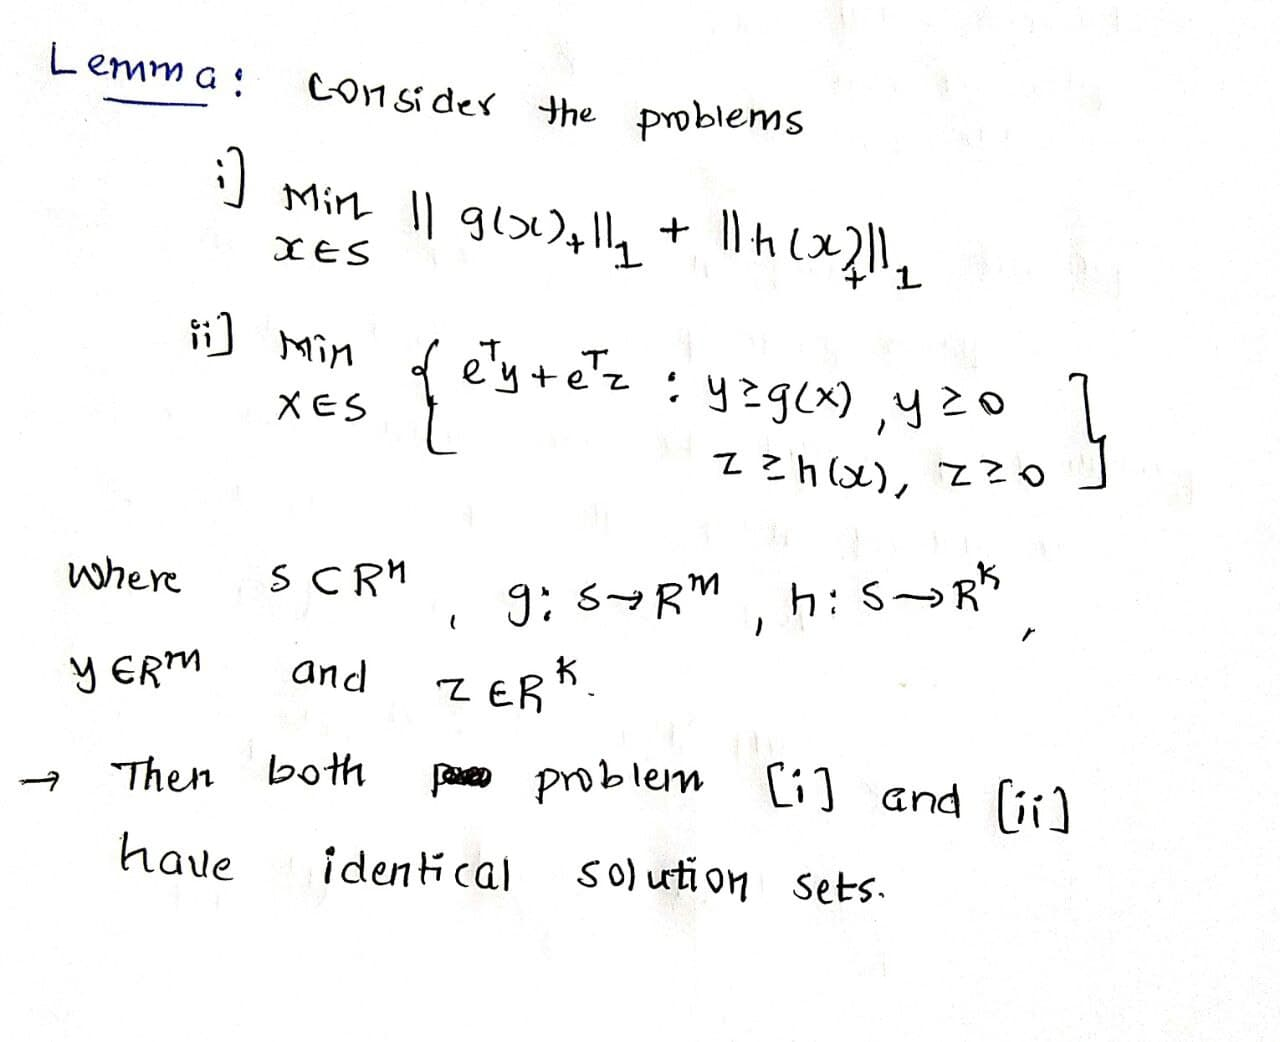 Lemma: Consider the problems
i] Min || g(x)₊||₁ + ||h(x)₊||₁
x∈S
ii] Min { eᵀy + eᵀz : y ≥ g(x), y ≥ 0 }
x∈S z ≥ h(x), z ≥ 0
where S ⊂ Rⁿ, g: S→Rᵐ, h: S→Rᵏ,
y ∈ Rᵐ and z ∈ Rᵏ.
→ Then both problem [i] and [ii]
have identical solution sets.